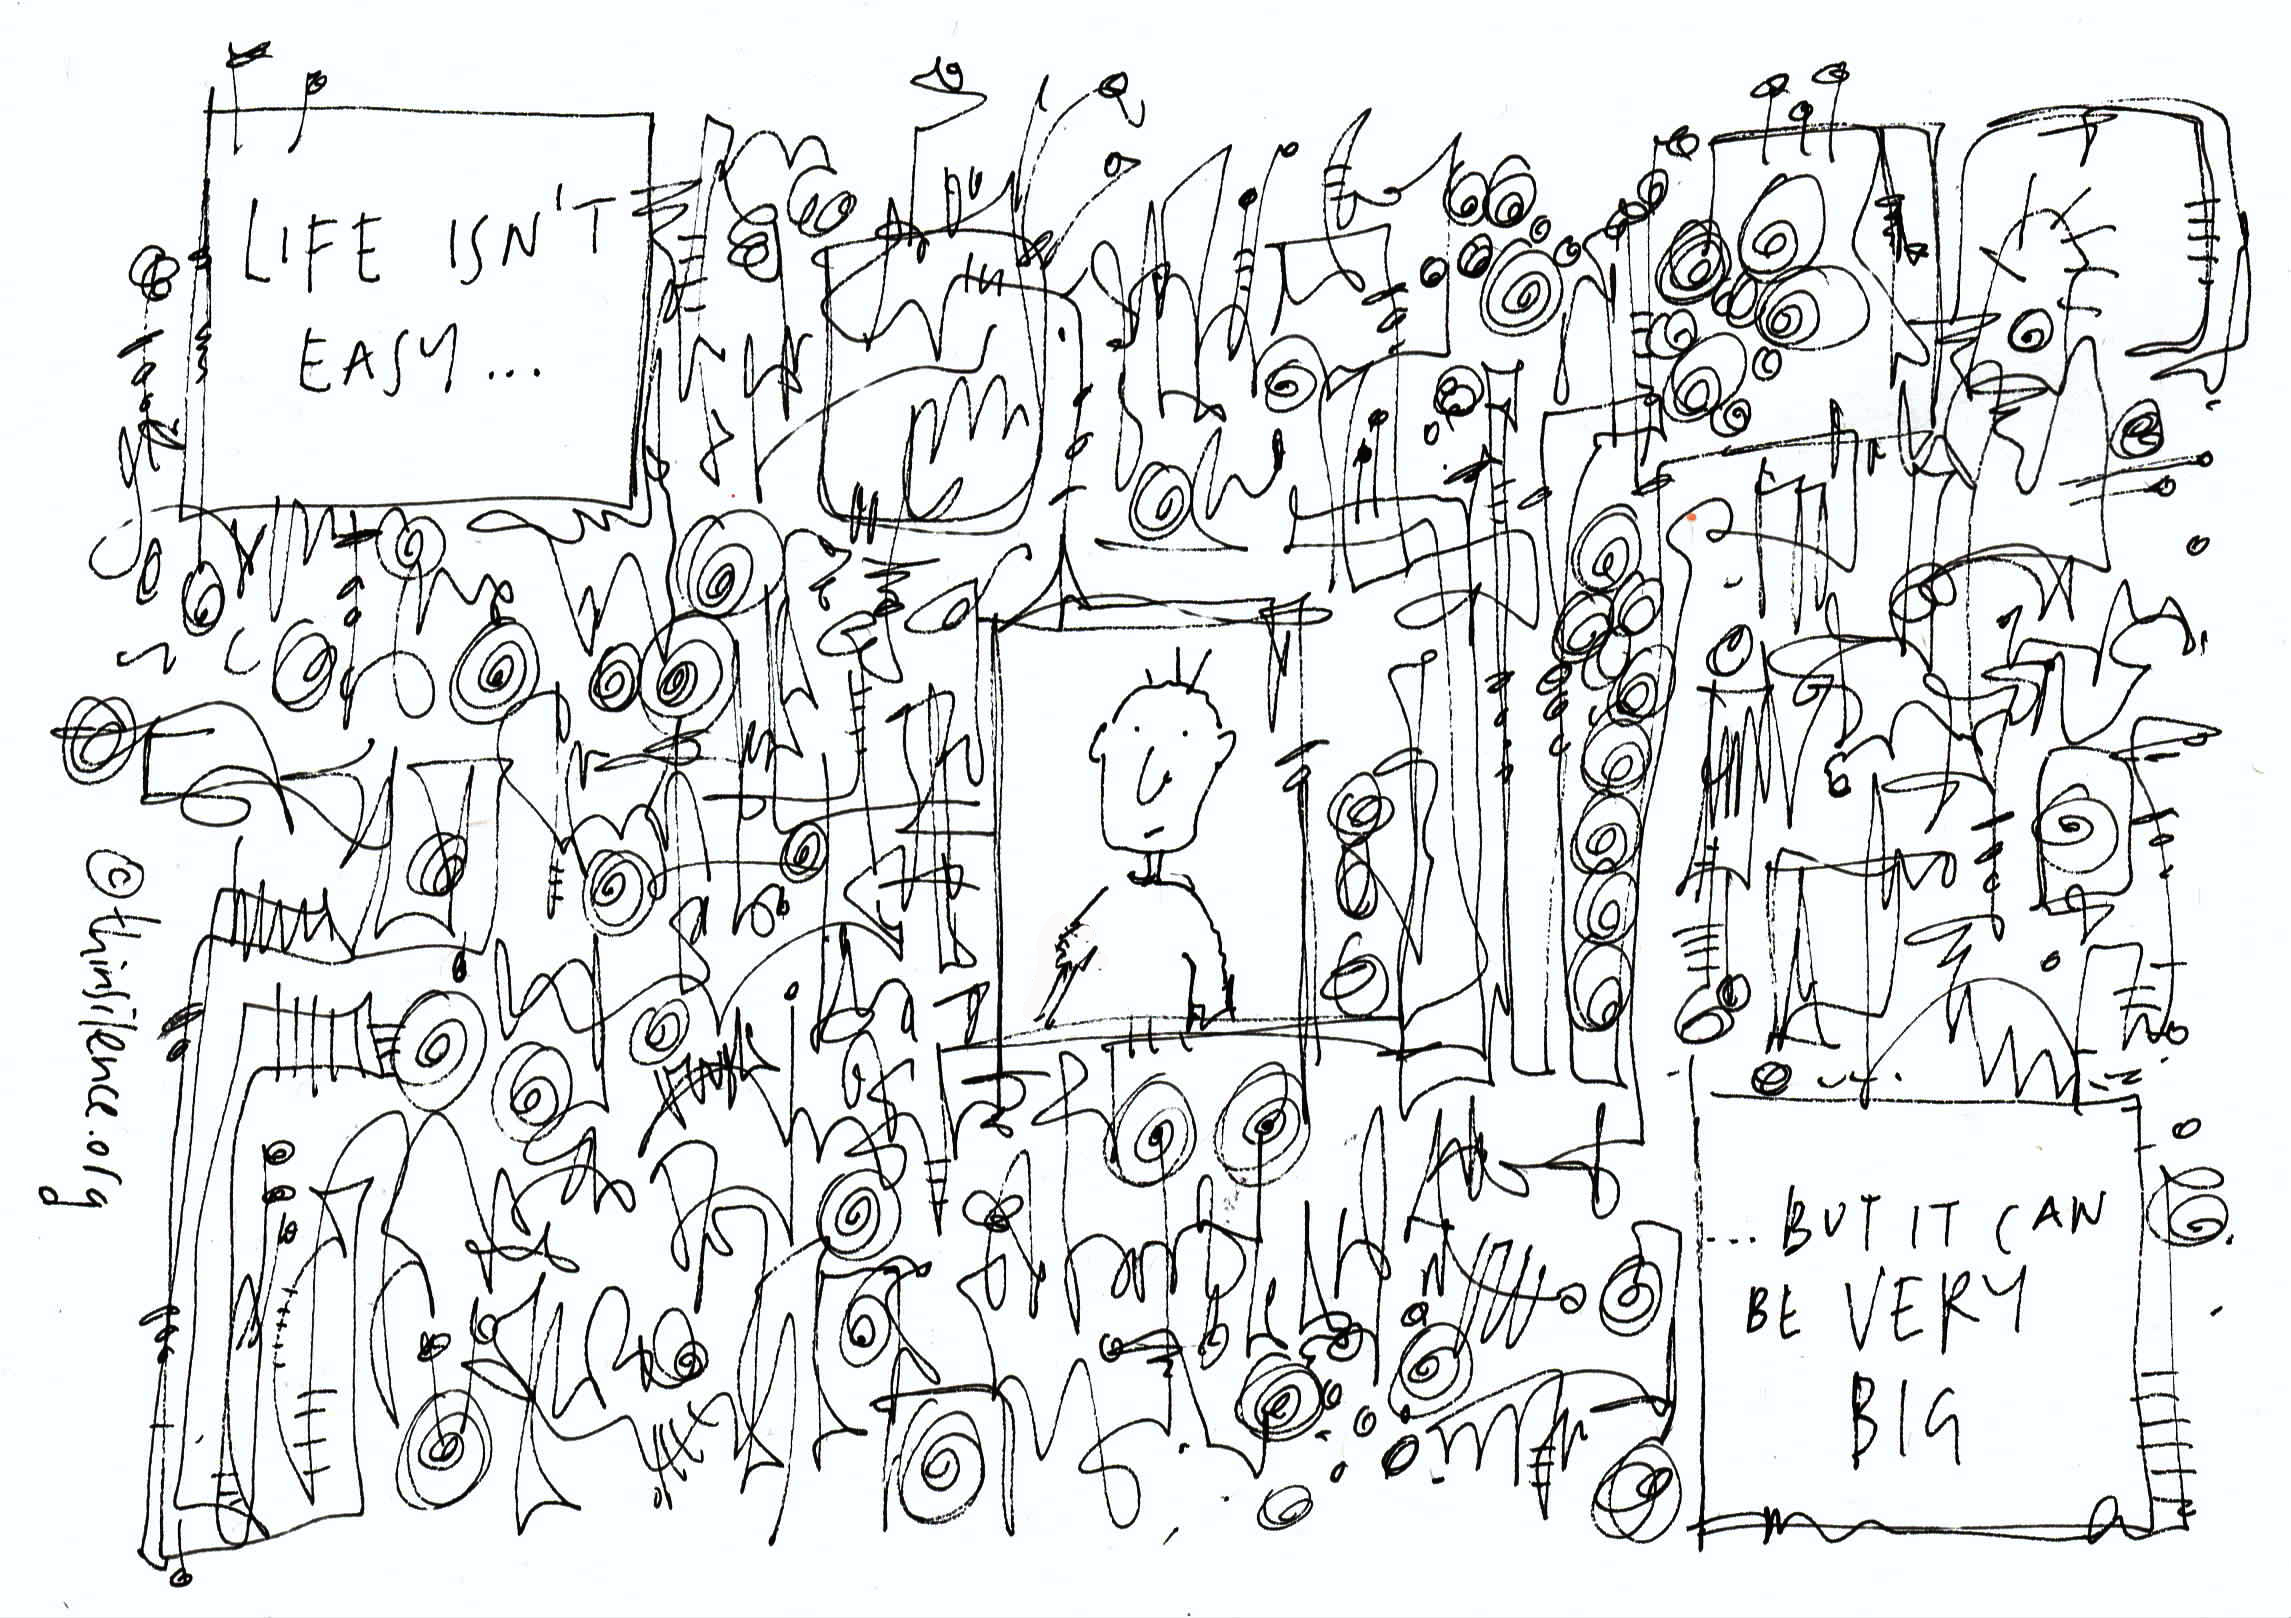 LIFE ISN'T
EASY...
...BUT IT CAN
BE VERY
BIG
©thinsilence.org